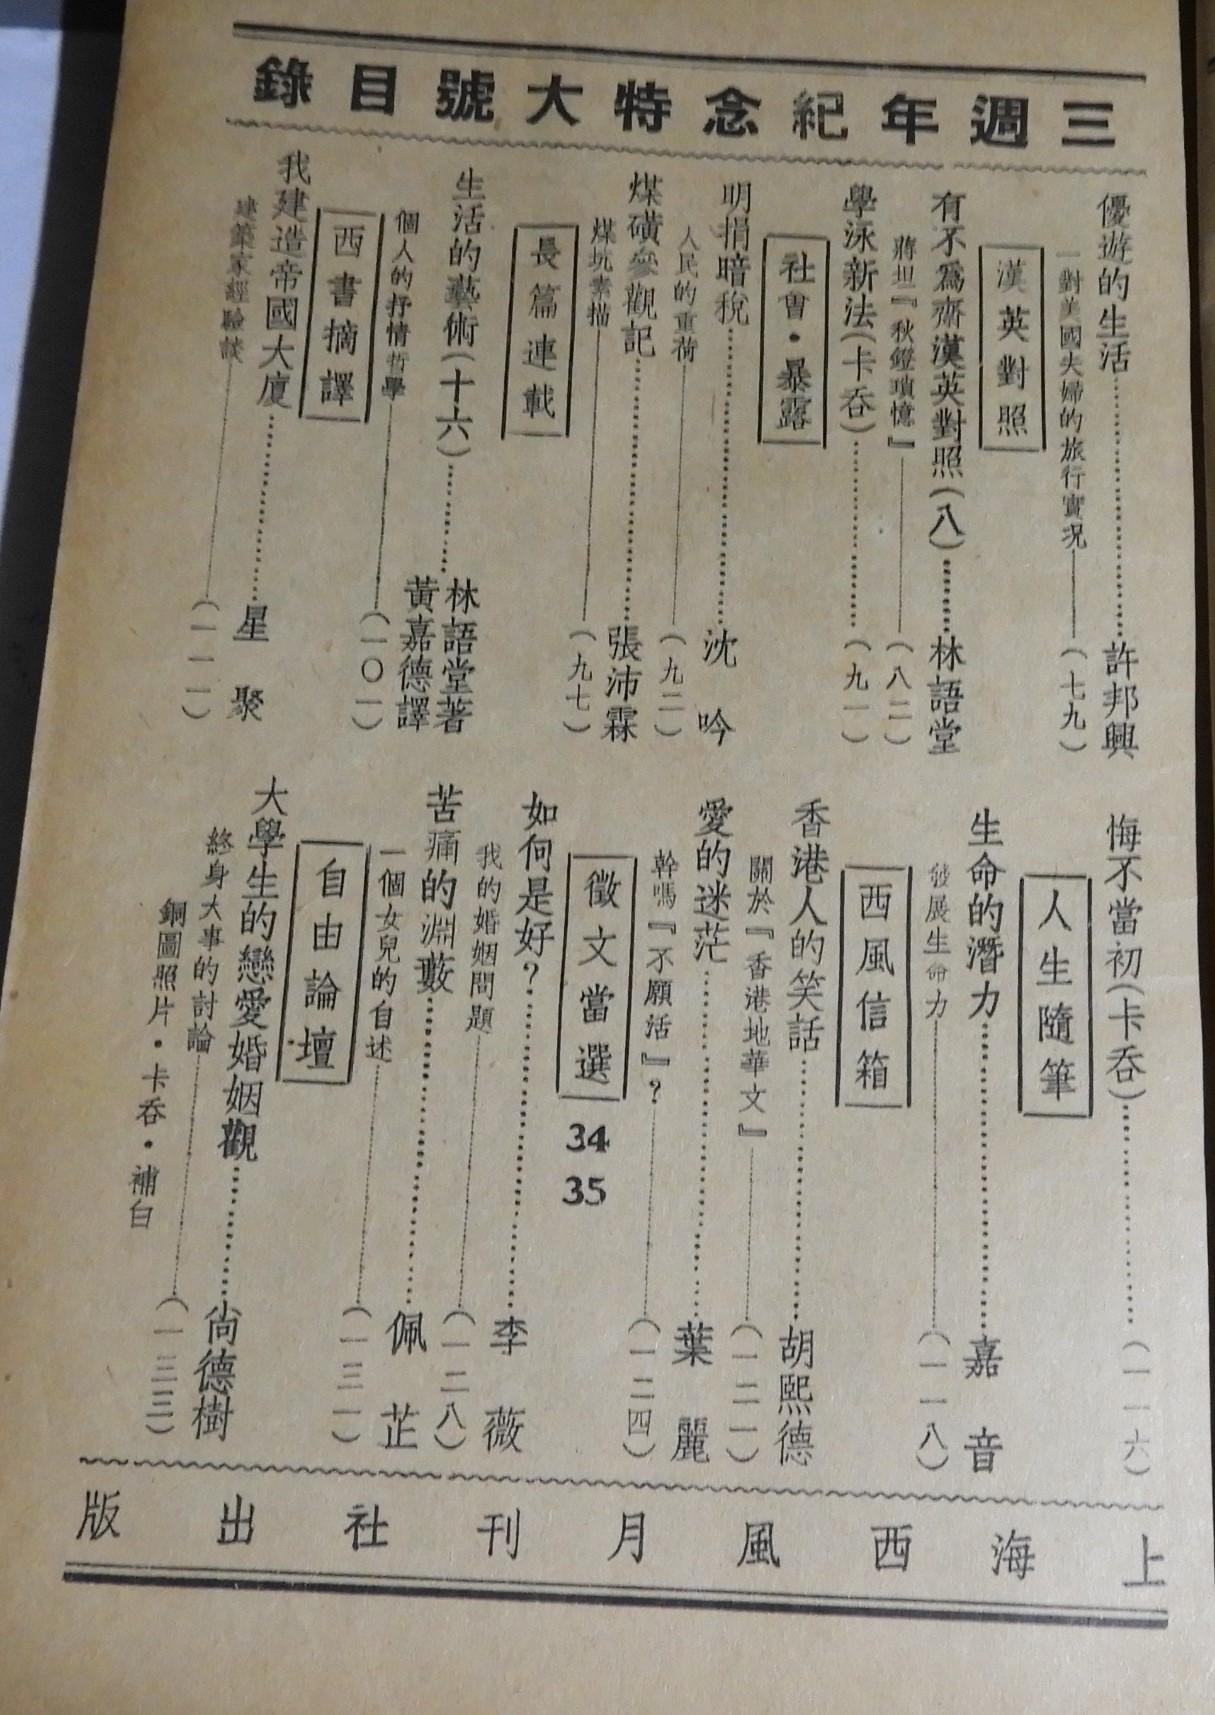 三週年紀念特大號目錄
優遊的生活…………許邦興
一對美國夫婦的旅行實況——（七九）
漢英對照
有不爲齋漢英對照（八）…………林語堂
蔣坦『秋鐙瑣憶』——（八二）
學泳新法（卡吞）…………（九一）
社會・暴露
明捐暗稅…………沈吟
人民的重荷——（九二）
煤礦參觀記…………張沛霖
煤坑素描——（九七）
長篇連載
生活的藝術（十六）…………林語堂著
黃嘉德譯
個人的抒情哲學——（一〇一）
西書摘譯
我建造帝國大廈…………星聚
建築家經驗談——（一一一）
悔不當初（卡吞）…………（一一六）
人生隨筆
生命的潛力…………嘉音
發展生命力——（一一八）
西風信箱
香港人的笑話…………胡熙德
關於『香港地華文』——（一二一）
愛的迷茫…………葉麗
幹嗎『不願活』？——（一二四）
徵文當選 34 35
如何是好？…………李薇
我的婚姻問題——（一二八）
苦痛的淵藪…………佩芷
一個女兒的自述——（一三一）
自由論壇
大學生的戀愛婚姻觀…………尙德樹
終身大事的討論——（一三三）
銅圖照片・卡吞・補白
上海西風月刊社出版